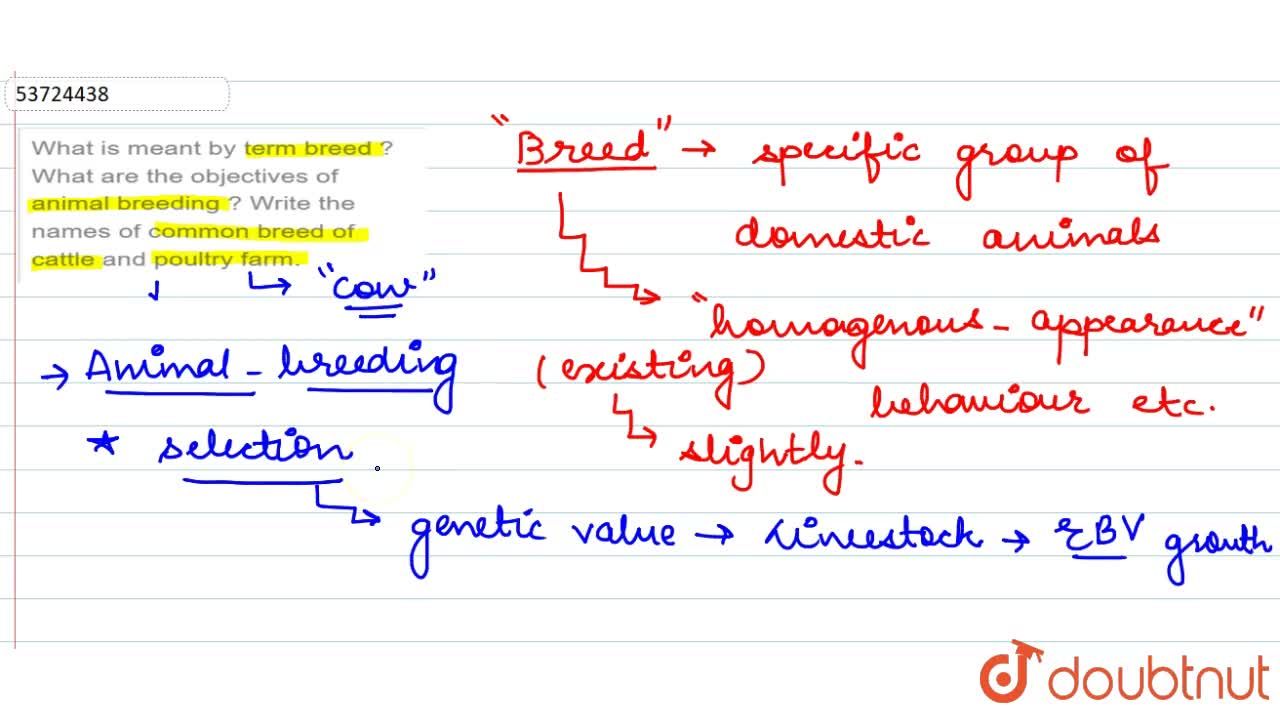 53724438
What is meant by term breed ?
What are the objectives of
animal breeding ? Write the
names of common breed of
cattle and poultry farm.
"Breed" → specific group of
domestic animals
"homagenous - appearance"
(existing) behaviour etc.
slightly.
→ "cow"
→ Animal - breeding
* selection
genetic value → Livestock → EBV growth
doubtnut